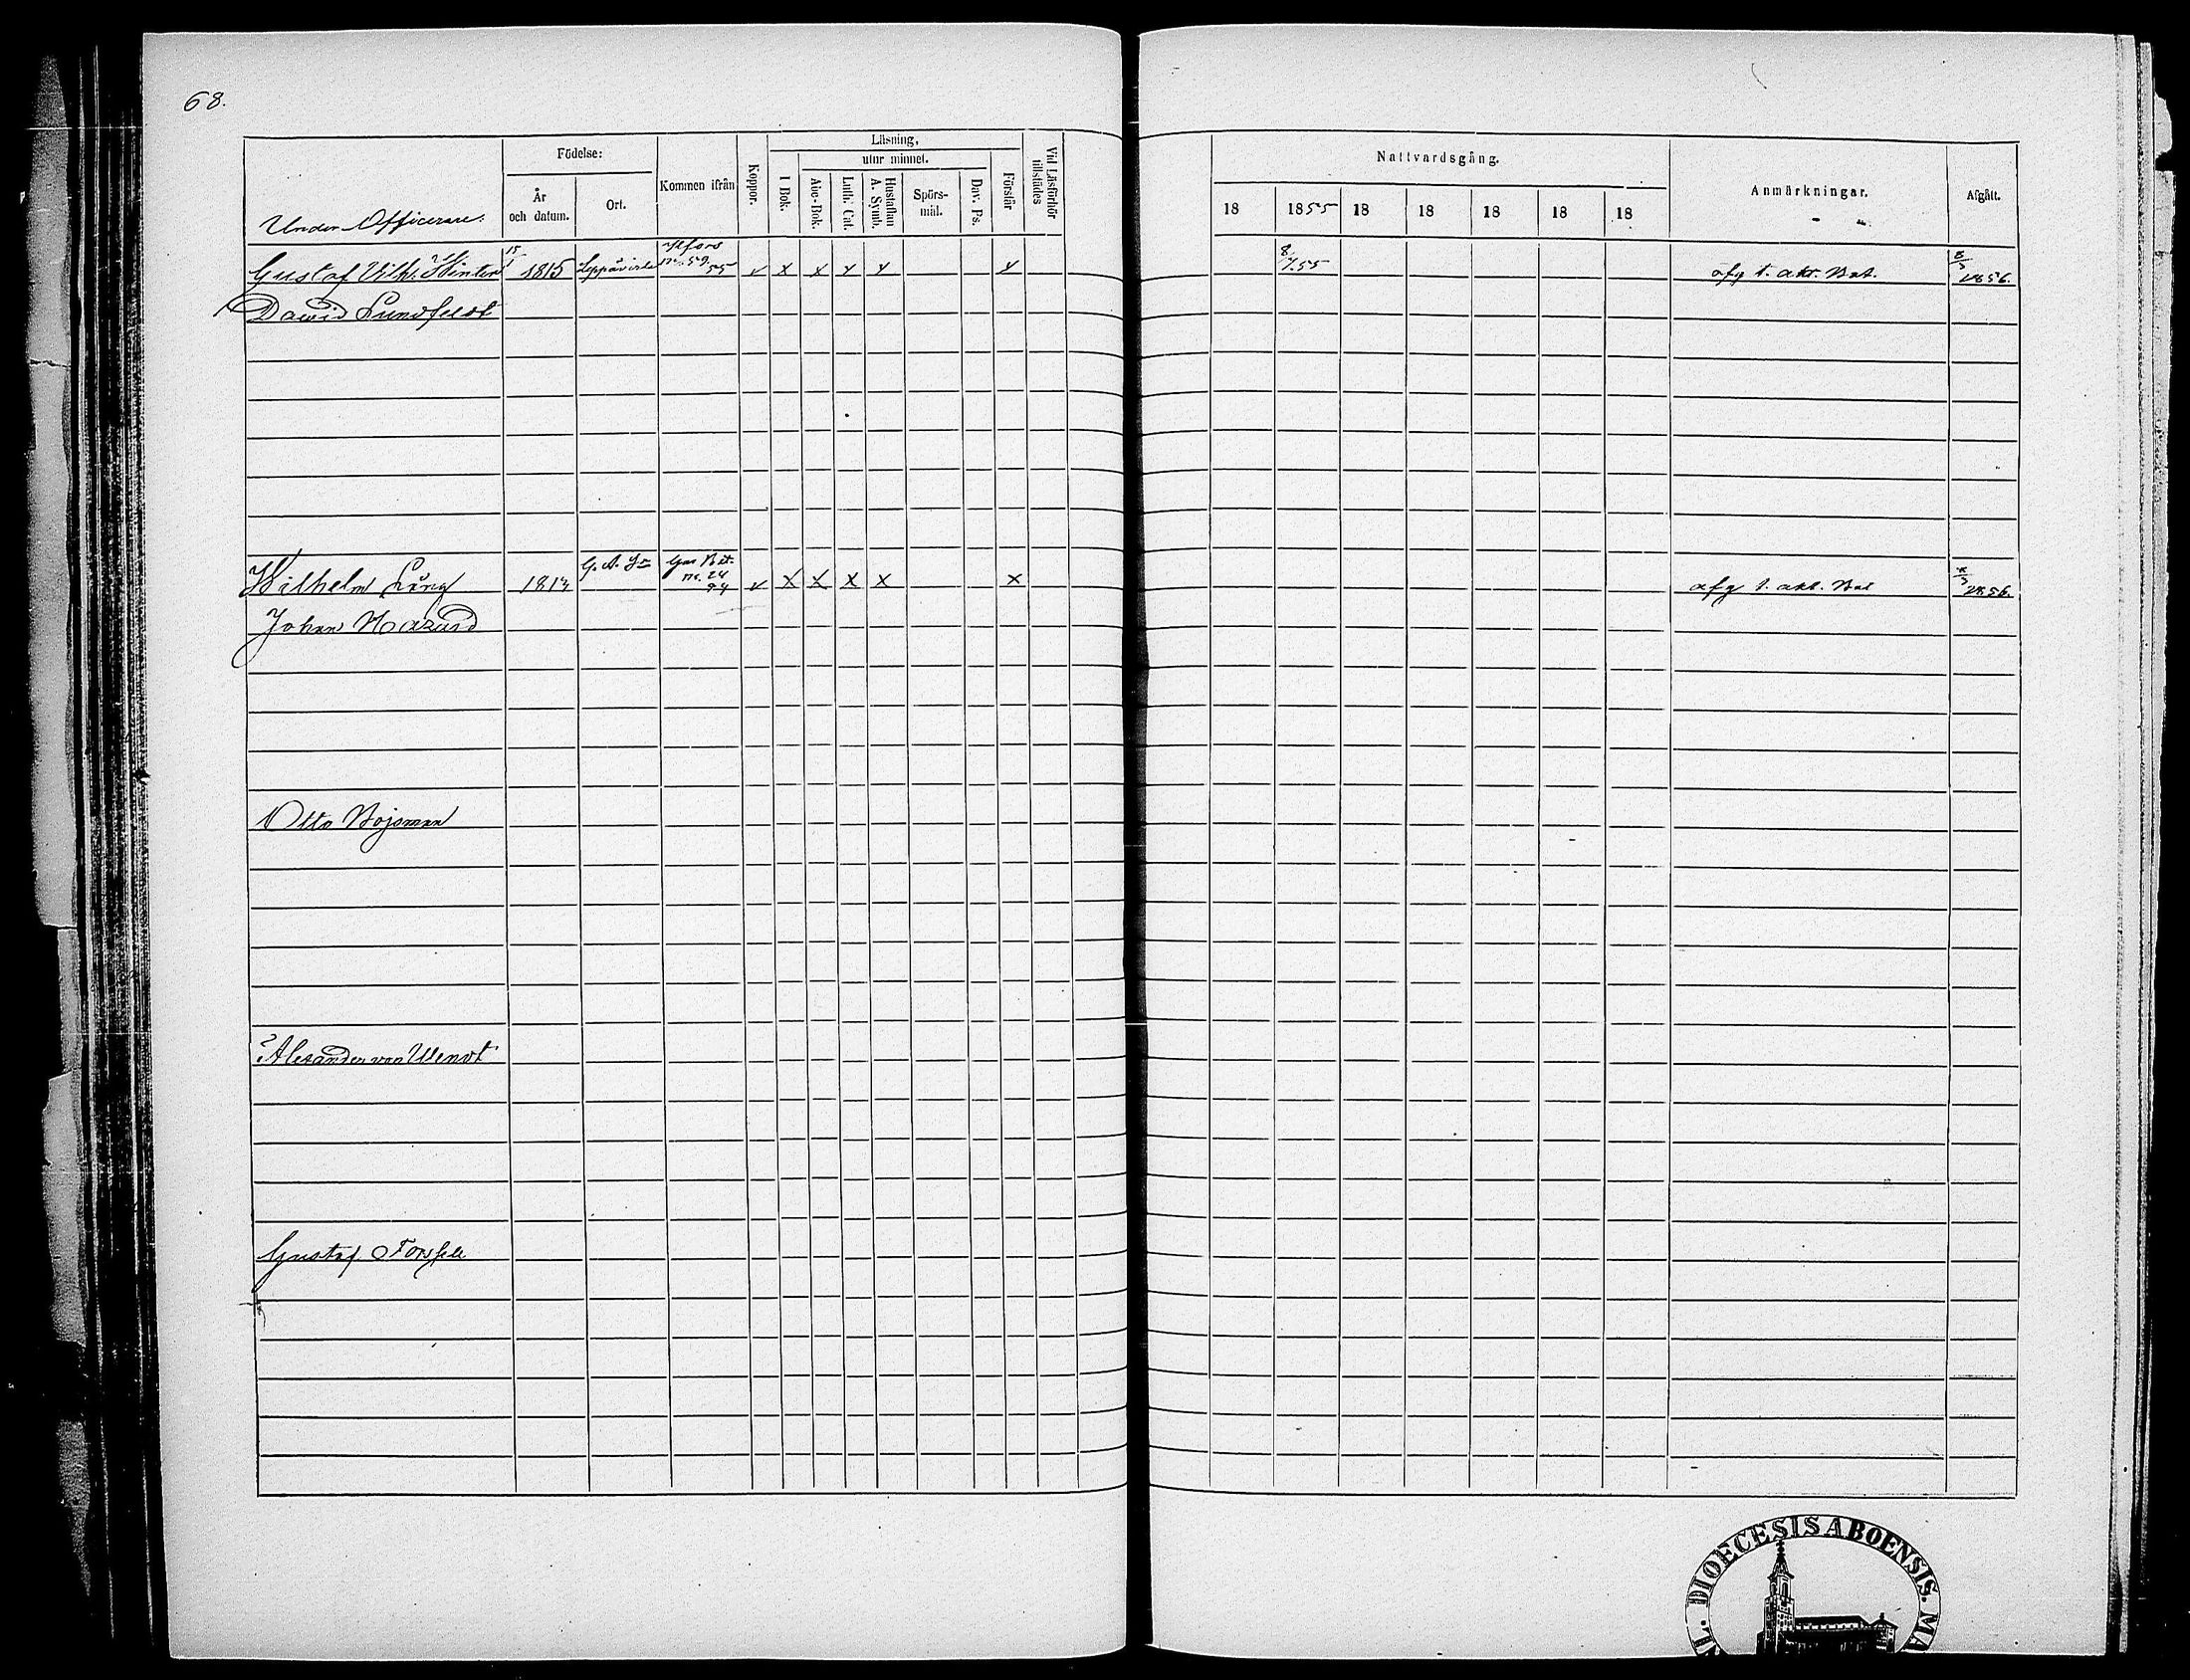 68.
Under Officerare.
Födelse:
År och datum.
Ort.
Kommen ifrån
Koppor.
Läsning,
utur minnet.
I Bok.
Abc-Bok.
Luth. Cat.
Hustaflan A. Symb.
Spörs-mål.
Dav. Ps.
Förstår
Vid Läsförhör tillstädes
Nattvardsgång.
18 1855 18 18 18 18 18
Anmärkningar.
Afgått.
Gustaf Vilh. Winter 15/1 1815 Leppävirta Hfors 55 x x x x x 8/7 55 afg t. akt. Bat. 8/3 1856.
David Lundfeldt
Wilhelm Lång 181 G. A. Gm Bat. no. 24 x x x x x afg t. akt. Bat 1856.
Johan Hasund
Otto Bojsman
Alexander von Wendt
Gustaf Forssell
DIOECESIS ABOENSIS. MA